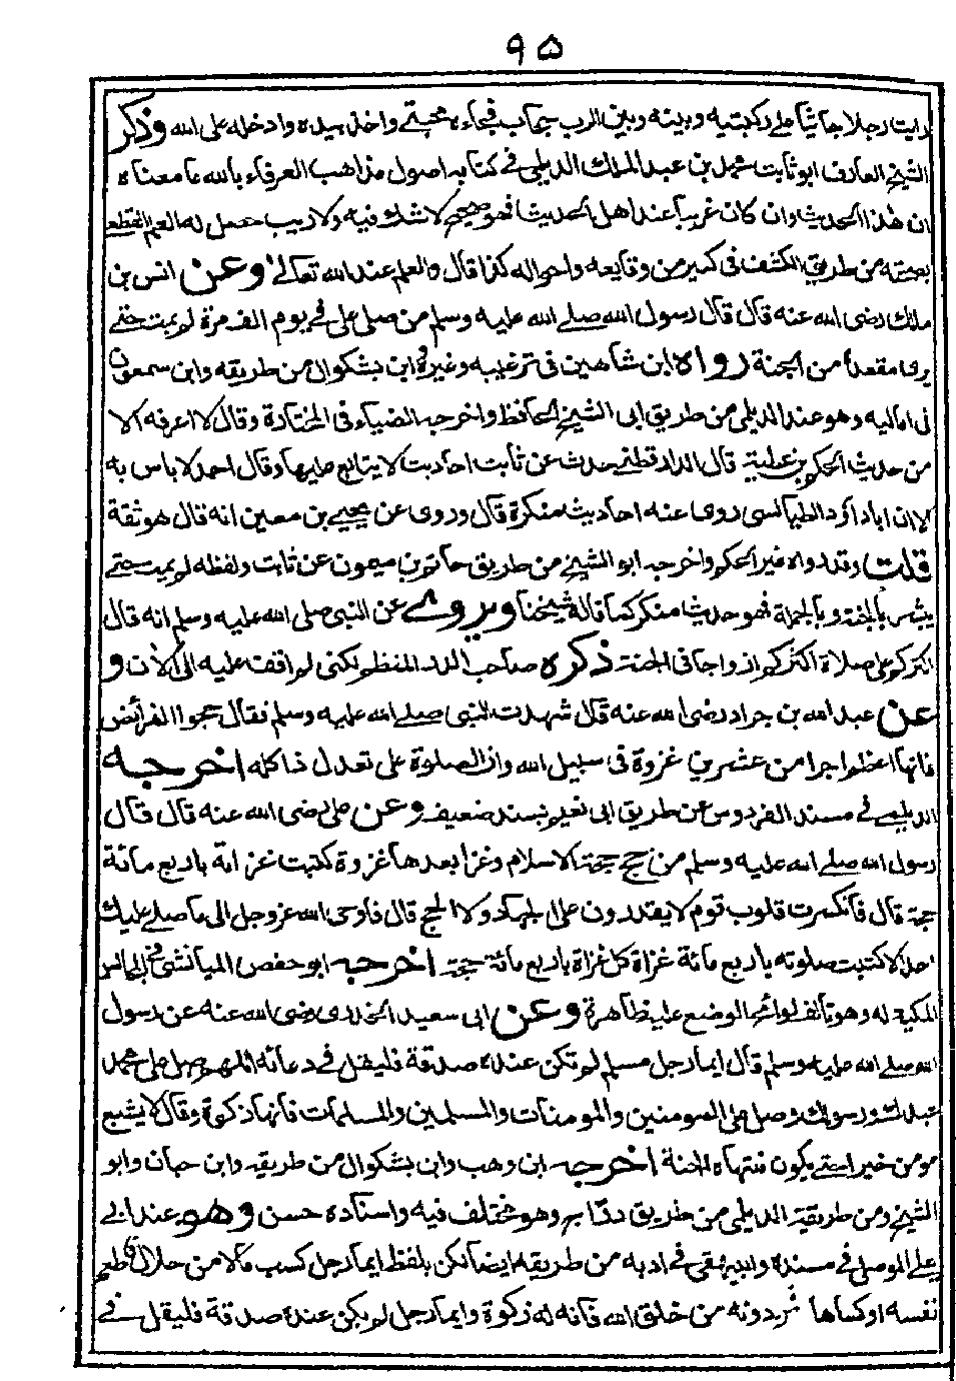 ٩٥
رايت رجلا جاثيا على ركبتيه وبينه وبين الرب حجاب فجاءه محبتي واخذ بيده وادخله على الله وذكر
الشيخ العارف ابو ثابت محمد بن عبد الملك الديلمي في كتابه اصول مذاهب العرفاء بالله ما معناه
ان هذا الحديث وان كان غريبا عند اهل الحديث فهو صحيح لا شك فيه ولا ريب حصل له العلم القطعي
بصحته من طريق الكشف في كثير من وقايعه واحواله كذا قال والعلم عند الله تعالى وعن انس بن
مالك رضى الله عنه قال قال رسول الله صلے الله عليه وسلم من صلى علي في يوم الف مرة لم يمت حتى
يرى مقعدا من الجنة رواه ابن شاهين فى ترغيبه وغيره وابن بشكوال من طريقه وابن سمعون
فى اماليه وهو عند الديلمي من طريق ابى الشيخ الحافظ واخرجه الضياء فى المختارة وقال لا اعرفه الا
من حديث الحكم بن عطية قال الدارقطني حدث عن ثابت احاديث لا يتابع عليها وقال احمد لا باس به
الا ان ابا داؤد الطيالسى روى عنه احاديث منكرة قال وروى عن يحيے بن معين انه قال هو ثقة
قلت وقد رواه غير الحكم واخرجه ابو الشيخ من طريق حاتم بن ميمون عن ثابت ولفظه لم يمت حتے
يبشر بالجنة وبالجملة فهو حديث منكر كما قاله شيخنا ويروے عن النبى صلى الله عليه وسلم انه قال
اكثركم علي صلاة اكثركم ازواجا فى الجنة ذكره صاحب الدر المنظم لكنى لم اقف عليه الى الآن و
عن عبد الله بن جراد رضى الله عنه قال شهدت النبى صلے الله عليه وسلم فقال حجوا الفرائض
فانها اعظم اجرا من عشرين غزوة فى سبيل الله وان الصلوة على تعدل ذا كله اخرجه
الديلمے في مسند الفردوس من طريق ابى نعيم بسند ضعيف وعن على رضى الله عنه قال قال
رسول الله صلے الله عليه وسلم من حج حجة الاسلام وغزا بعدها غزوة كتبت غزاته باربع مائة
حجة قال فانكسرت قلوب قوم لا يقدرون على الجهاد ولا الحج قال فاوحى الله عز وجل الى ما صلے عليك
احد الا كتبت صلوته باربع مائة غزاة كل غزاة باربع مائة حجة اخرجه ابو حفص الميانشى في المجالس
المكية له وهو تالف لوائح الوضع عليه ظاهرة وعن ابى سعيد الخدرى رضى الله عنه عن رسول
الله صلے الله عليه وسلم قال ايما رجل مسلم لم تكن عنده صدقة فليقل في دعائه اللهم صل على محمد
عبدك ورسولك وصل على المومنين والمومنات والمسلمين والمسلمات فانها زكوة وقال لا يشبع
مومن خيرا حتے يكون منتهاه الجنة اخرجه ابن وهب وابن بشكوال من طريقه وابن حبان وابو
الشيخ ومن طريقه الديلمى من طريق دراج وهو مختلف فيه واسناده حسن وهو عند ابي
يعلے الموصلى في مسنده والبيهقى في ادبه من طريقه ايضا لكن بلفظ ايما رجل كسب مالا من حلال فاطعم
نفسه او كساها فمن دونه من خلق الله فانه له زكوة وايما رجل لم يكن عنده صدقة فليقل في